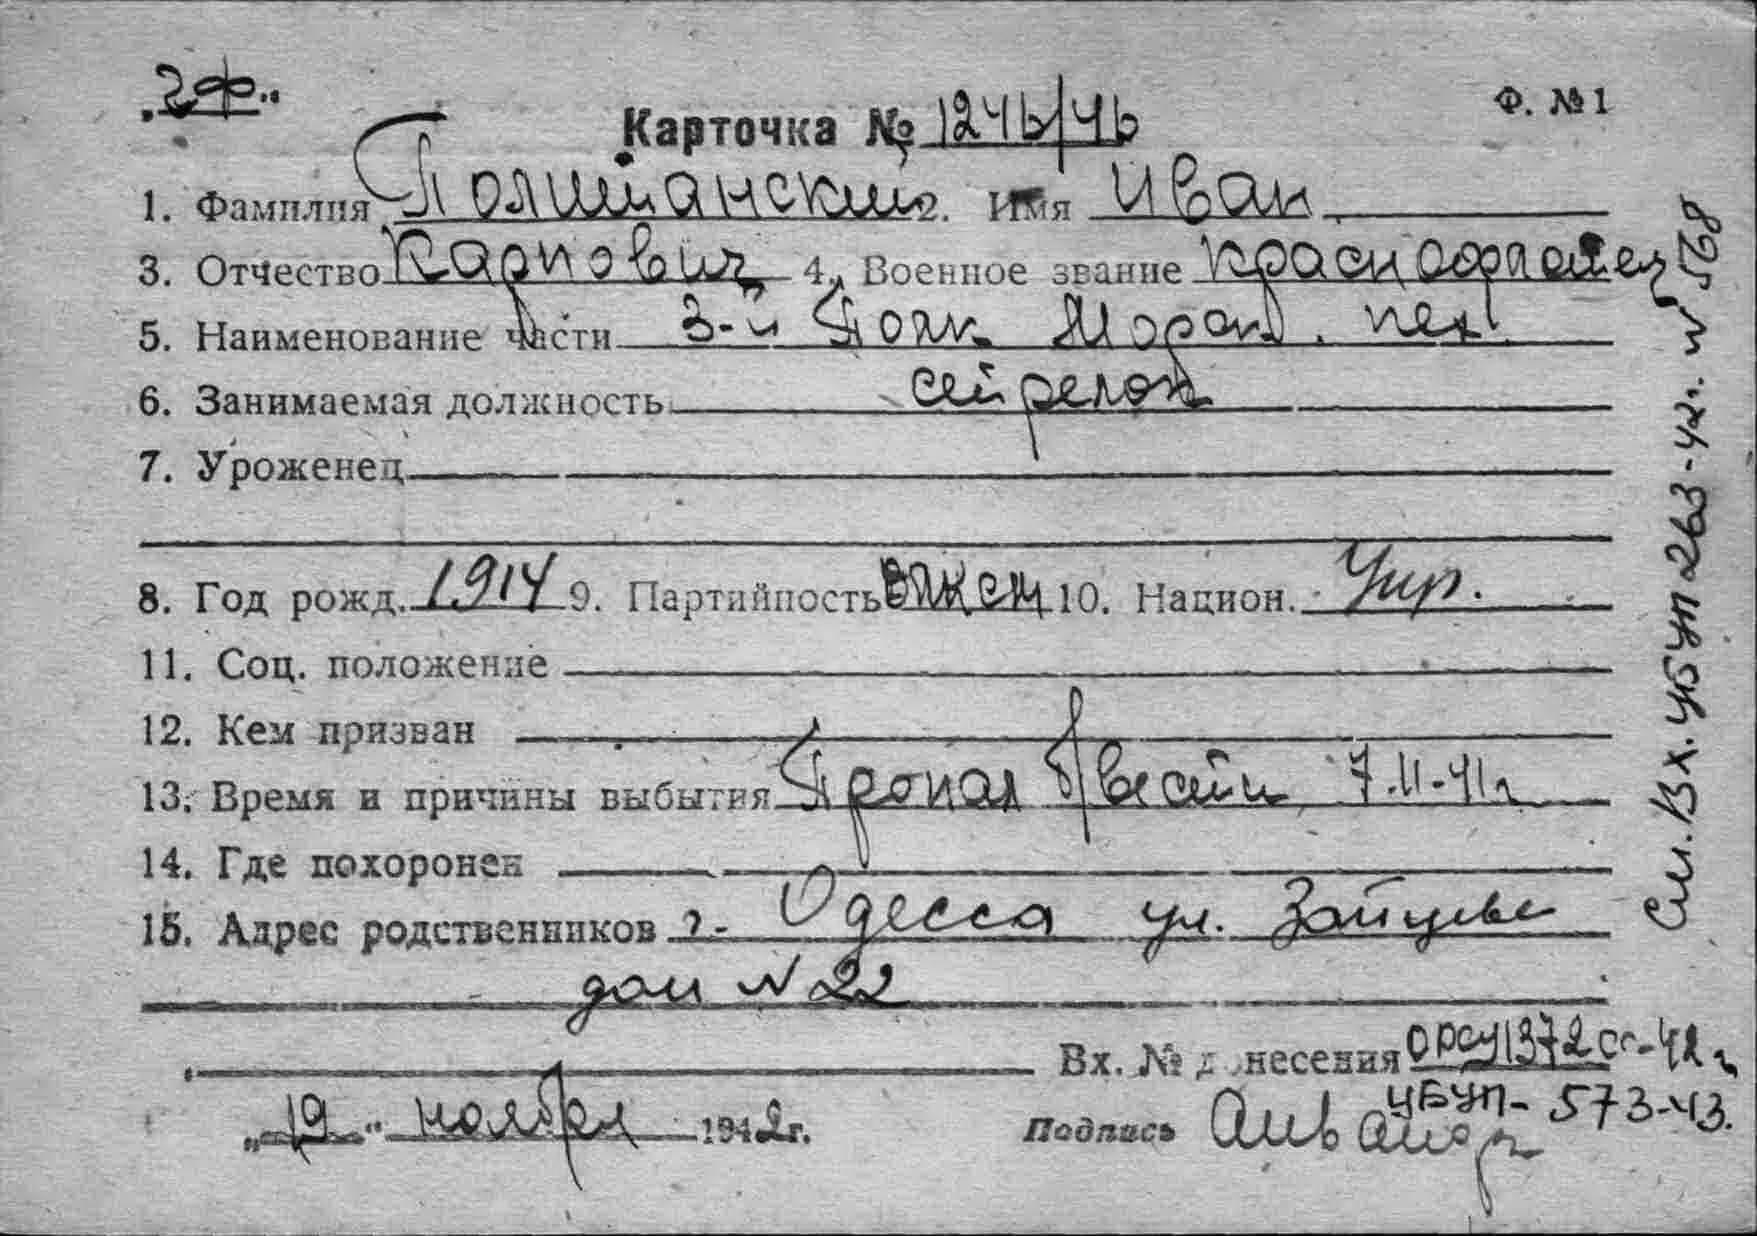 "2ф"
Ф. №1
Карточка № 1246/46
1. Фамилия Полтшанский 2. Имя Иван
3. Отчество Карпович 4. Военное звание краснофлотец
5. Наименование части 3-й Полк Морск. пех.
6. Занимаемая должность стрелок
7. Уроженец
8. Год рожд. 1914 9. Партийность ВЛКСМ 10. Национ. Укр.
11. Соц. положение
12. Кем призван
13. Время и причины выбытия Пропал б/вести 7.11-41г
14. Где похоронен
15. Адрес родственников г. Одесса ул. Зайцева
дом № 22
Вх. № донесения ОРСУ 1372сс-42г
УБУП - 573-43.
"19" ноября 1942г.
Подпись
См. Вх. УБУП 263-42г. № 568